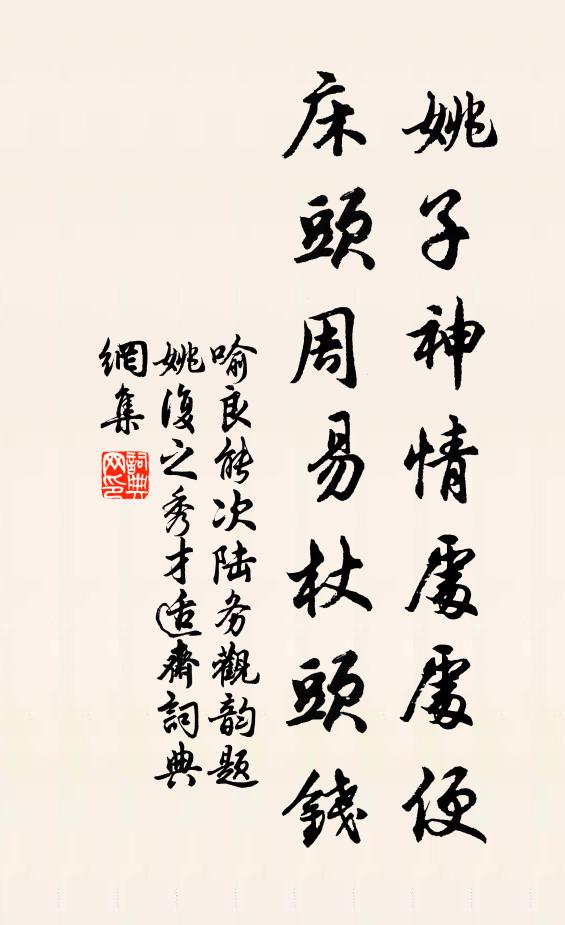 姚子神情處處便
床頭周易杖頭錢
喻良能次陆务觀韵题
姚復之秀才适齋詞典
網集
詞典网印